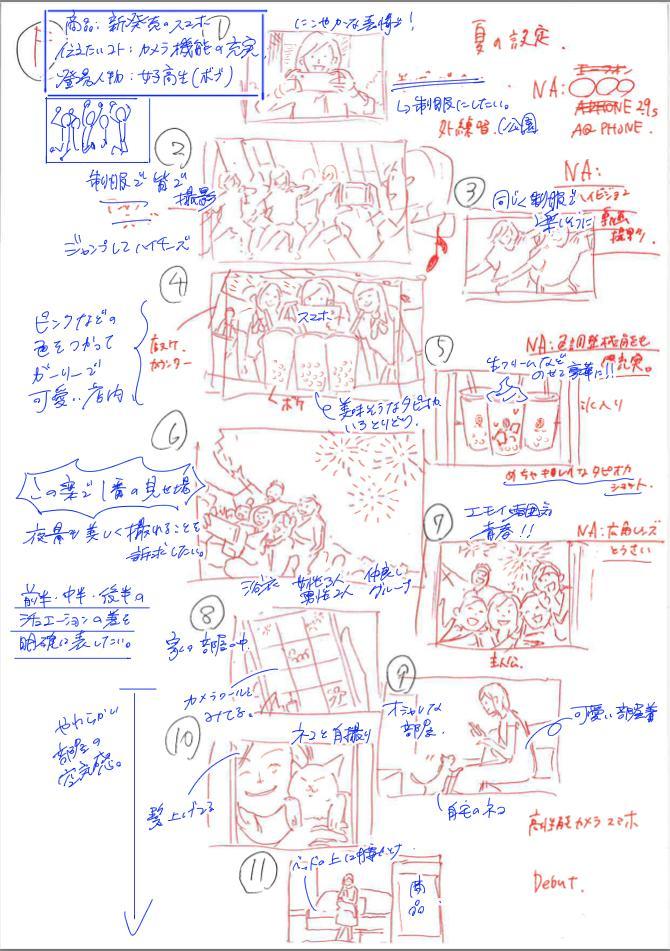 商品：新発売のスマホ
伝えたいコト：カメラ機能の充実
登場人物：女子高生（ボブ）
にこやかな表情で！
夏の設定.
↳制服にしたい。
外練習.（公園
NA:○○○
APHONE 29s
AQ PHONE.
②
制服で皆で
撮影
ジャンプしてハイチーズ
NA:
ハイビジョン
動画
撮影
③
同じく制服で
楽しそうに
④
ピンクなどの
色をつかって
ガーリーで
可愛い店内
カウンター
スマホ
ボケ
美味そうなタピオカ
いろとりどり.
NA:色調整機能も
充実。
⑤
生クリームなど
のせて豪華に!!
氷入り
めちゃキレイなタピオカ
ショット.
⑥
この楽で1番の見せ場
夜景が美しく撮れることも
訴求したい。
浴衣 女性3人
男性2人
仲良し
グループ
⑦
エモイ雰囲気
青春!!
NA:広角レンズ
とうさい
主人公.
前半・中半・後半の
シチュエーションの差を
明確に表したい。
⑧
家の部屋の中.
カメラロールを
みてる。
⑨
オシャレな
部屋.
可愛い部屋着
自宅のネコ
やわらかい
部屋の
空気感。
⑩
ネコと自撮り
髪上げてる
高性能カメラスマホ
Debut.
⑪
ベッドの上に
商品